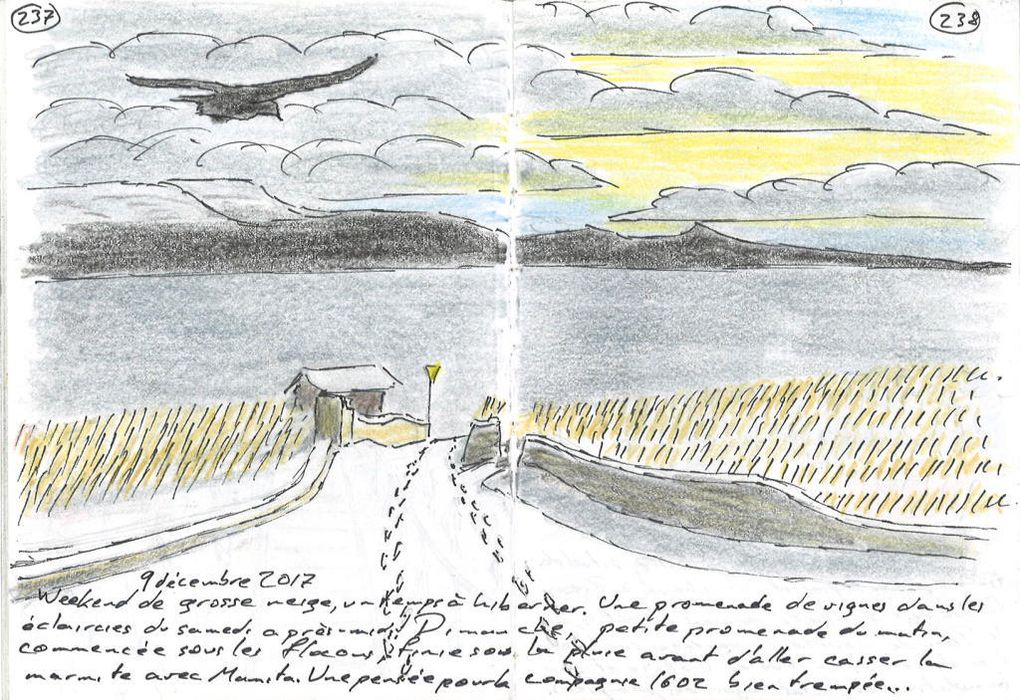 237
238
9 décembre 2017
Weekend de grosse neige, un temps à hiberner. Une promenade de vignes dans les
éclaircies du samedi après-midi. Dimanche, petite promenade du matin,
commencée sous les flocons, finie sous la pluie avant d'aller casser la
marmite avec Mamita. Une pensée pour la compagnie 1602 bien trempée...